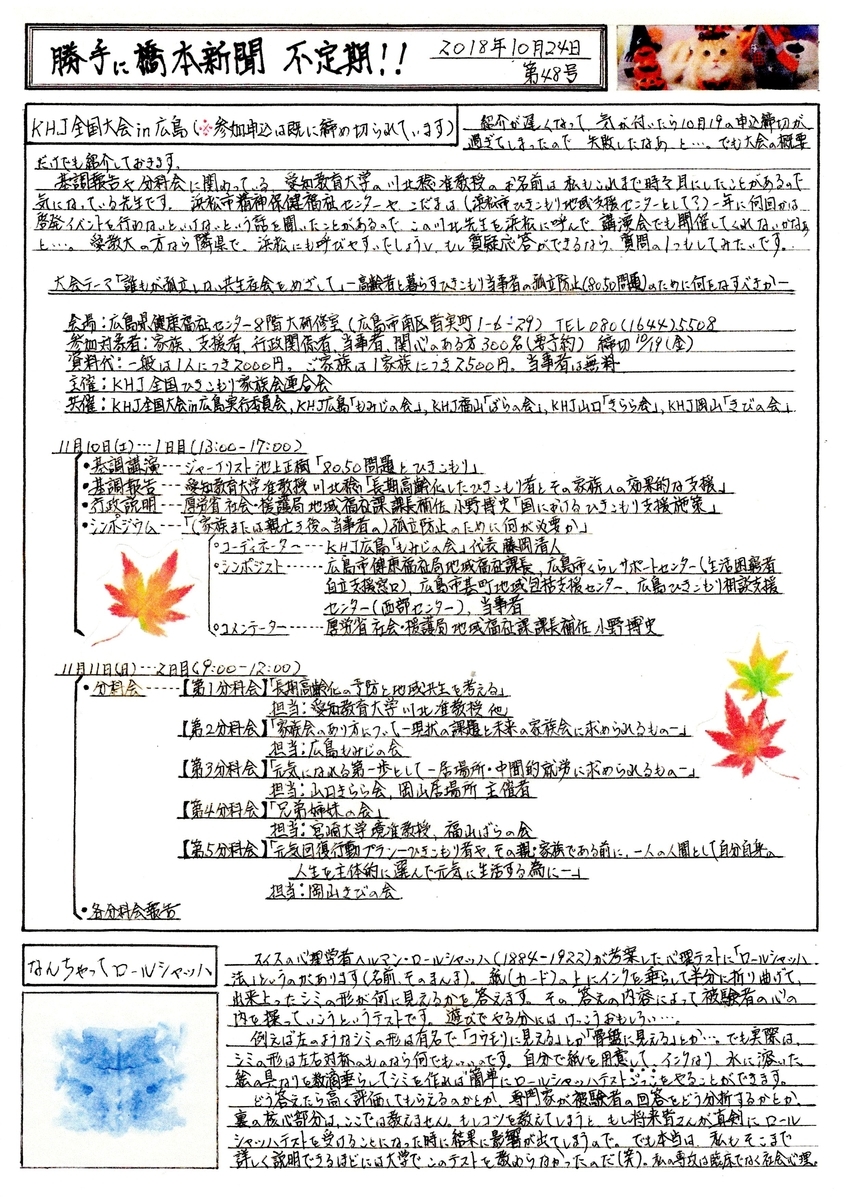 勝手に橋本新聞 不定期!!
2018年10月24日
第48号
KHJ全国大会in広島(※参加申込は既に締め切られています)
紹介が遅くなって、気が付いたら10月19の申込締切が、
過ぎてしまったので、失敗したなあ、と…。でも大会の概要
だけでも紹介しておきます。
基調報告や分科会に関わっている、愛知教育大学の川北稔准教授のお名前は私もこれまで時々耳にしたことがあるので
気になっている先生です。浜松市精神保健福祉センターや、こだまは、(浜松市ひきこもり地域支援センターとして?)一年に何回かは
啓発イベントを行わないといけないという話を聞いたことがあるので、この川北先生を浜松に呼んで、講演会でも開催してくれないかなぁ
と…。愛教大の方なら隣県で、浜松にも呼びやすいでしょうし、もし質疑応答ができるなら、質問の1つもしてみたいです。
大会テーマ「誰もが孤立しない共生社会をめざして」―高齢者と暮らすひきこもり当事者の孤立防止(8050問題)のために何をなすべきか―
会場:広島県健康福祉センター8階大研修室(広島市南区皆実町1-6-29) TEL080(1644)5508
参加対象者:家族、支援者、行政関係者、当事者、関心のある方300名(要予約) 締切10/19(金)
資料代:一般は1人につき2000円。ご家族は1家族につき2500円。当事者は無料
主催:KHJ全国ひきこもり家族会連合会
共催:KHJ全国大会in広島実行委員会,KHJ広島「もみじの会」,KHJ福山「ばらの会」,KHJ山口「きらら会」,KHJ岡山「きびの会」
11月10日(土)…1日目(13:00-17:00)
・基調講演---ジャーナリスト池上正樹「8050問題とひきこもり」
・基調報告---愛知教育大学准教授川北稔「長期高齢化したひきこもり者とその家族への効果的な支援」
・行政説明---厚労省社会・援護局地域福祉課課長補佐 小野博史「国におけるひきこもり支援施策」
・シンポジウム---「(家族または親亡き後の当事者の)孤立防止のために何が必要か」
○コーディネーター---KHJ広島「もみじの会」代表 藤岡清人
○シンポジスト------広島市健康福祉局地域福祉課長、広島市くらしサポートセンター(生活困窮者
自立支援窓口)、広島市基町地域包括支援センター、広島ひきこもり相談支援
センター(西部センター)、当事者
○コメンテーター-----厚労省社会・援護局地域福祉課課長補佐 小野博史
11月11日(日)…2日目(9:00-12:00)
・分科会----【第1分科会】「長期高齢化の予防と地域共生を考える」
担当:愛知教育大学川北准教授 他
【第2分科会】「家族会のあり方について―現状の課題と未来の家族会に求められるもの―」
担当:広島もみじの会
【第3分科会】「元気になれる第一歩として―居場所・中間的就労に求められるもの―」
担当:山口きらら会、岡山居場所 主催者
【第4分科会】「兄弟姉妹の会」
担当:宮崎大学境准教授、福山ばらの会
【第5分科会】「元気回復行動プラン―ひきこもり者や、その親・家族である前に、一人の人間として自分自身の
人生を主体的に選んで元気に生活する為に―」
担当:岡山きびの会
・各分科会報告
なんちゃってロールシャッハ
スイスの心理学者ヘルマン・ロールシャッハ(1884-1922)が考案した心理テストに「ロールシャッハ
法」というのがあります(名前、そのまんま)。紙(カード)の上にインクを垂らして半分に折り曲げて、
出来上ったシミの形が何に見えるかを答えます。その答えの内容によって被験者の心の
内を探っていこうというテストです。遊びでやる分には、けっこうおもしろい…。
例えば左のようなシミの形は有名で「コウモリに見える」とか「骨盤に見える」とか…。でも実際は、
シミの形は左右対称のものなら何でもいいのです。自分で紙を用意して、インクなり、水に溶いた
絵の具なりを数滴垂らしてシミを作れば簡単にロールシャッハテストごっこをやることができます。
どう答えたら高く評価してもらえるのかとか、専門家が被験者の回答をどう分析するかとか、
裏の核心部分は、ここでは教えません。もしコツを教えてしまうと、もし将来皆さんが真剣にロール
シャッハテストを受けることになった時に結果に影響が出てしまうので。でも本当は、私もそこまで
詳しく説明できるほどには大学でこのテストを教わらなかったのだ(笑)。私の専攻は臨床でなく社会心理。